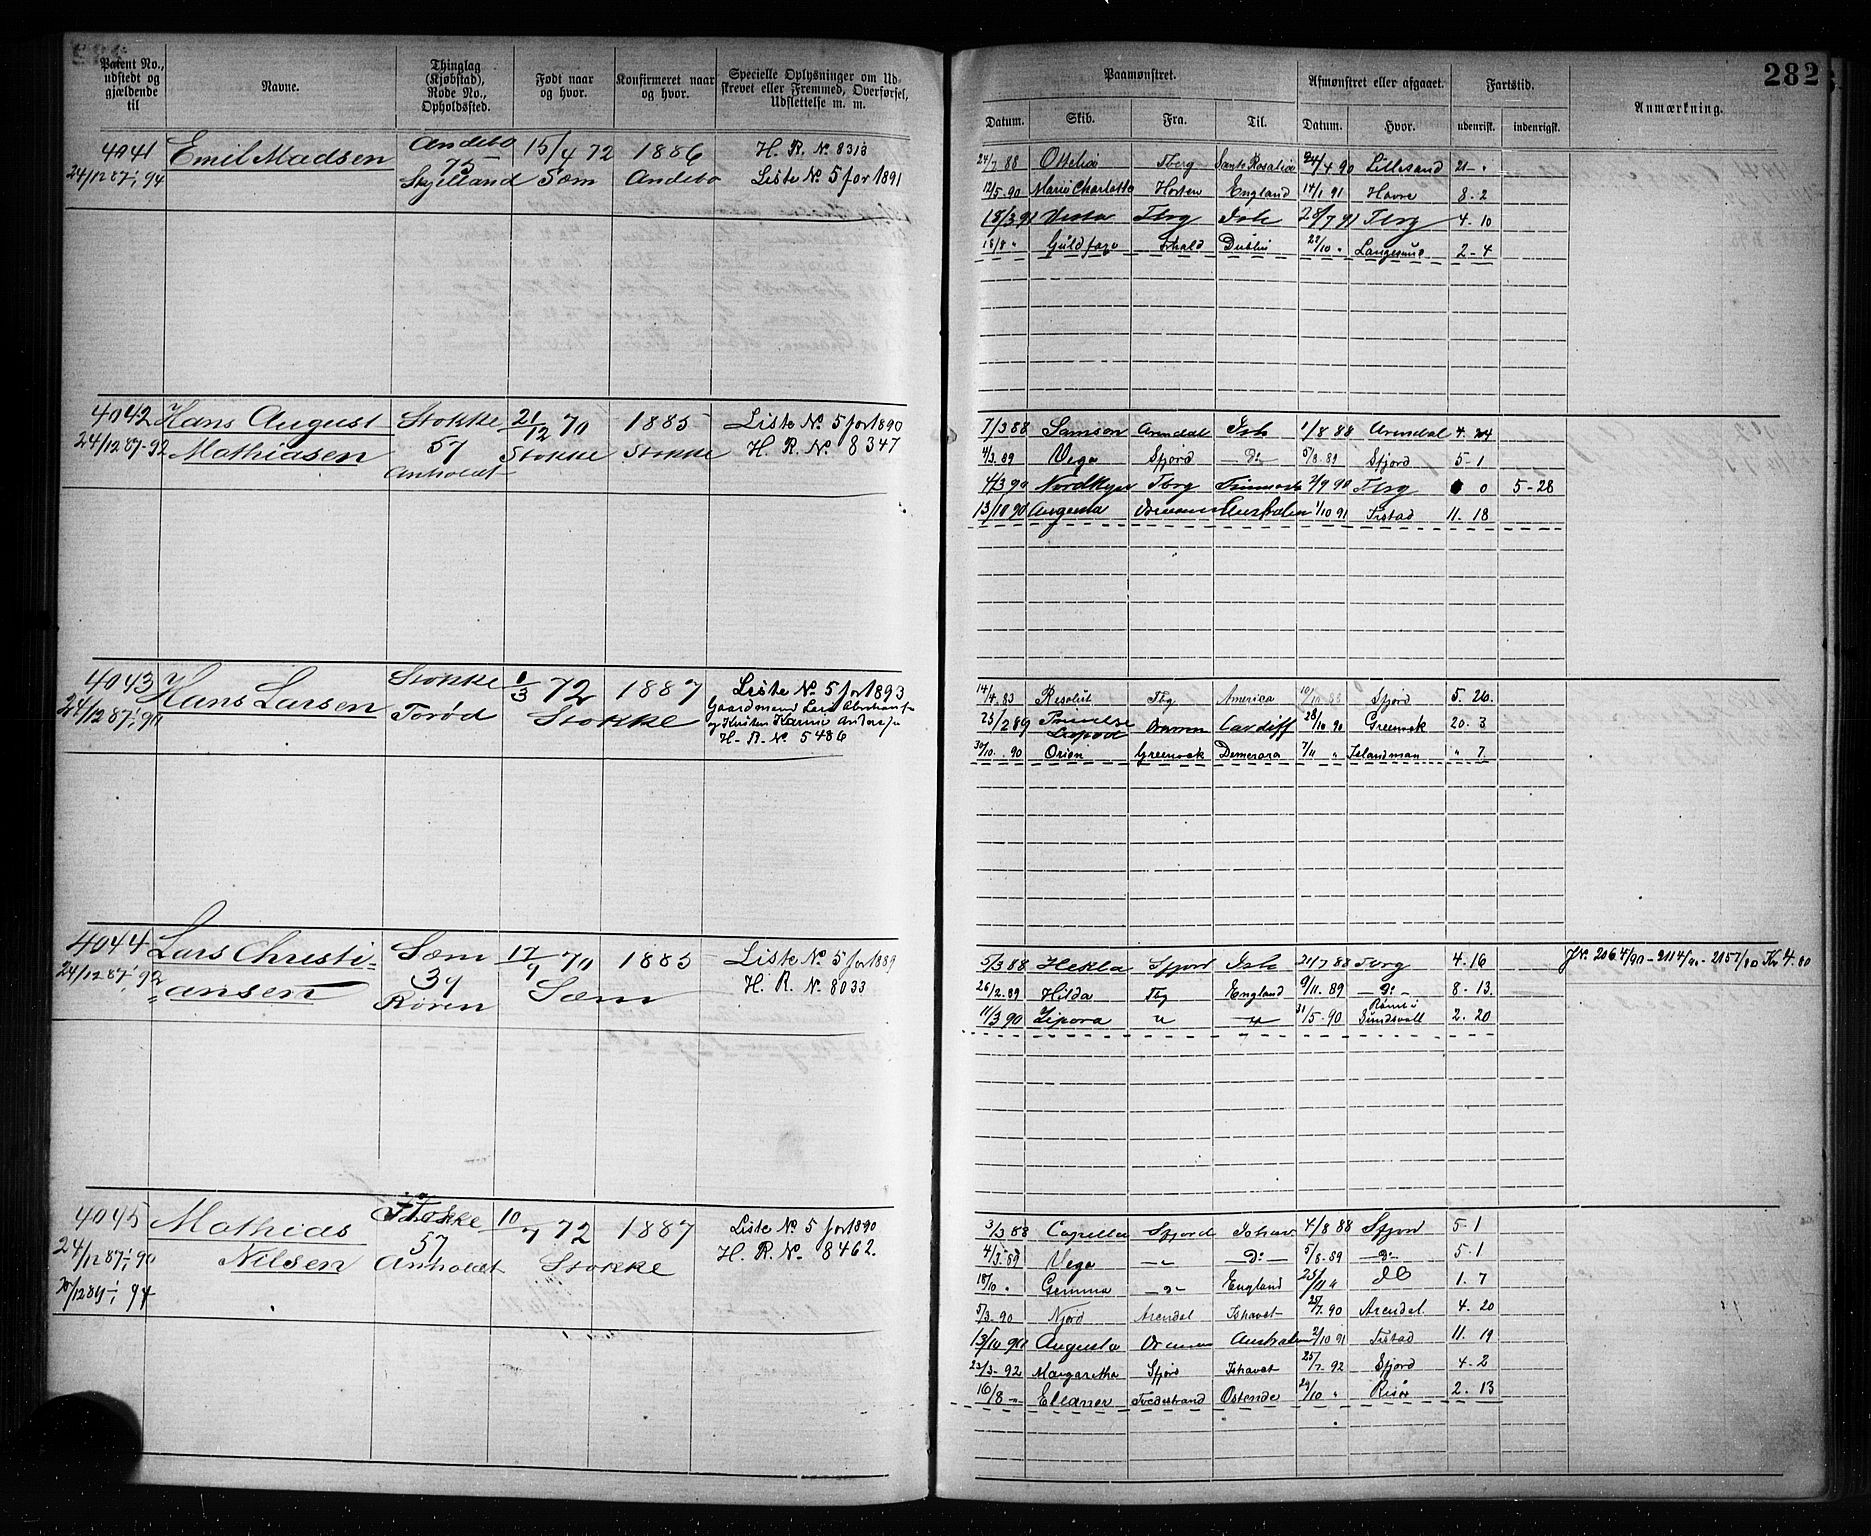 282
Patent No., udstedt og gjældende til
Navne.
Thinglag (Kjøbstad), Rode No., Opholdssted.
Født naar og hvor.
Konfirmeret naar og hvor.
Specielle Oplysninger om Udskrevet eller Fremmed, Overførsel, Udslettelse m. m.
Paamønstret.
Afmønstret eller afgaaet.
Fartstid.
Anmærkning.
Datum. Skib. Fra. Til. Datum. Hvor. udenrigsk. indenrigsk.
4041 Emil Madsen Andebo 15/4 72 1886 H. R. No 8313
24/12 87-1/1 94 75 Skjelland Sæm Andebo Liste No 5 for 1891
24/7 88 Ottelia Tberg Santa Rosalia 24/4 90 Lillesand 21 - "
12/5 90 Marie Charlotte Horten England 14/1 91 Havre 8 - 2
18/3 91 Vesta Tbrg Ish 28/7 91 Tbrg 4 - 10
18/8 " Guldfaxe Fhald Dublin 22/10 " Langesund 2 - 4
4042 Hans August Stokke 21/12 70 1885 Liste No 5 for 1890
24/12 87-92 Mathiasen 57 Stokke Stokke H. R. No 8347
Anholdt
7/3 88 Samson Arendal Ish 1/8 88 Arendal 4. 24
4/3 89 Vega Sfjord Do 5/8 89 Sfjord 5 - 1
4/3 90 Nordkyn Tbrg 2/9 90 Tbrg 0 5 - 28
13/10 90 Augusta Drammen Australien 1/10 91 Frstad 11. 18
4043 Hans Larsen Stokke 1/3 72 1887 Liste No 5 for 1893
24/12 87-1/1 90 Torød Stokke Gaardmand Lars Abrahams
og Kirsten Karine Anders
H. R. No 5486
14/4 83 Resolut Tbg America 10/10 88 Sfjord 5. 26
25/2 89 Prindsesse Leopold Drammen Cardiff 28/10 90 Greenock 20. 3
30/10 90 Orion Greenock Demerara 7/11 " Islandman " 7
4044 Lars Christi= Sæm 17/9 70 1885 Liste No 5 for 1889
24/12 87-1/1 92 =ansen 34 Sæm H. R. No 8033
Røren
5/3 88 Hekla Sfjord Ish 21/7 88 Tbrg 4. 16
26/2 89 Hilda Tbg England 9/11 89 Do 8 - 13
11/3 90 Zipora " " 31/5 90 Rømt i Sundsvall 2. 20
4045 Mathias Stokke 10/7 72 1887 Liste No 5 for 1890
24/12 87-1/1 90 Nilsen 57 Anholdt Stokke H. R. No 8462.
1/1 94
3/3 88 Capella Sfjord Ishav. 4/8 88 Sfjord 5 - 1
4/3 89 Vega - " - Do 5/8 89 Do 5 - 1
18/10 " Gemma - " - England 25/11 " Do 1. 7
5/3 90 Njord Arendal Ishavet 25/7 90 Arendal 4. 20
13/10 90 Augusta Drammen Australien 2/10 91 Frstad 11. 19
23/3 92 Margaretha Sfjord Ishavet 25/7 92 Sfjord 4 - 2
16/8 " Eleanor Tvedestrand Ostende 29/10 " Risør 2. 13